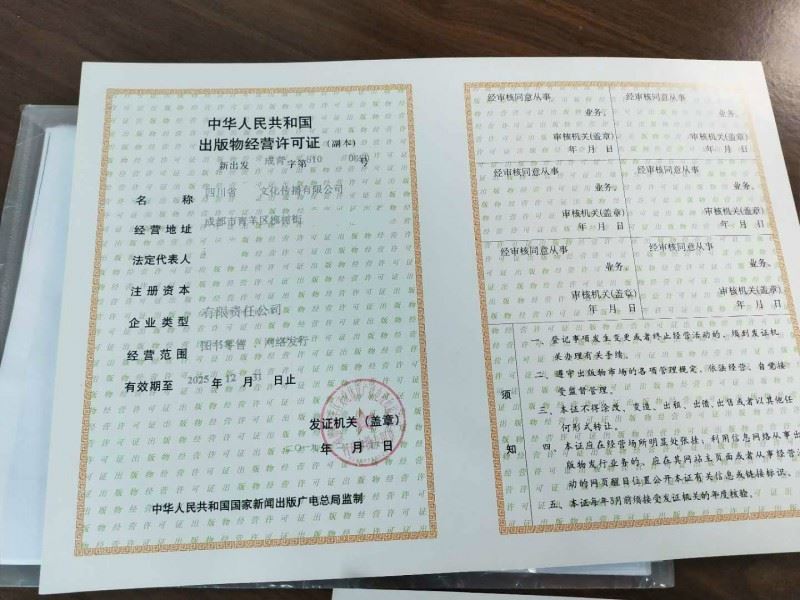 中华人民共和国
出版物经营许可证（副本）
新出发 成青 字第 510 号
名 称 四川省 文化传播有限公司
经营地址 成都市青羊区
法定代表人
注册资本
企业类型 有限责任公司
经营范围 图书零售 网络发行
有效期至 2025年12月31日止
发证机关（盖章）
年 月 日
中华人民共和国国家新闻出版广电总局监制
经审核同意从事
业务。
审核机关(盖章)
年 月 日
经审核同意从事
业务。
审核机关(盖章)
年 月 日
经审核同意从事
业务。
审核机关(盖章)
年 月 日
经审核同意从事
业务。
审核机关(盖章)
年 月 日
经审核同意从事
业务。
审核机关(盖章)
年 月 日
经审核同意从事
业务。
审核机关(盖章)
年 月 日
须知
一、登记事项发生变更或者终止经营活动的，须到发证机
关办理有关手续。
二、遵守出版物市场的各项管理规定，依法经营、自觉接
受监督管理。
三、本证不得涂改、变造、出租、出借、出售或者以其他任
何形式转让。
四、本证应在经营场所明显处张挂，利用信息网络从事出
版物发行业务的，应在其网站主页面或者从事经营活
动的网页醒目位置公开本证有关信息或链接标识。
五、本证每年3月前须接受发证机关的年度核验。